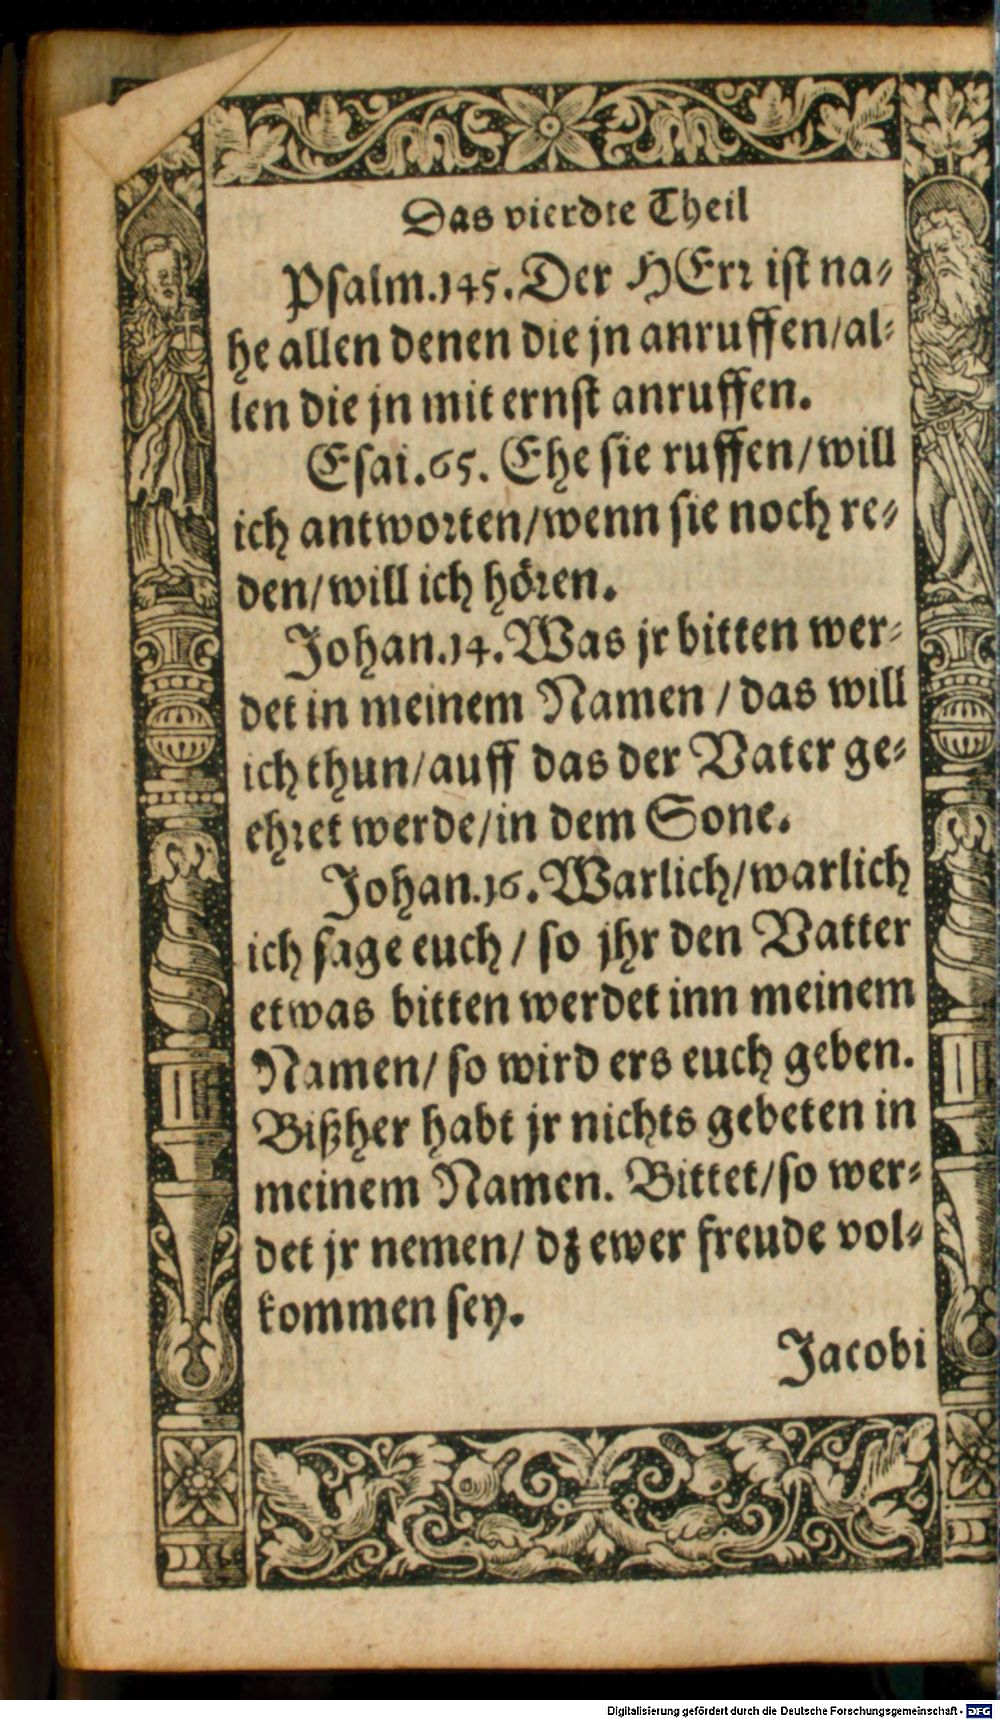 Das vierdte Theil
Psalm.145. Der HErr ist na-
he allen denen die jn anruffen/al-
len die jn mit ernst anruffen.
Esai.65. Ehe sie ruffen/will
ich antworten/wenn sie noch re-
den/will ich hören.
Johan.14. Was jr bitten wer-
det in meinem Namen / das will
ich thun/auff das der Vater ge-
ehret werde/in dem Sone.
Johan.16. Warlich/warlich
ich sage euch / so jhr den Vatter
etwas bitten werdet inn meinem
Namen/ so wird ers euch geben.
Bißher habt jr nichts gebeten in
meinem Namen. Bittet/so wer-
det jr nemen/ dz ewer freude vol-
kommen sey.
Jacobi
Digitalisierung gefördert durch die Deutsche Forschungsgemeinschaft - DFG